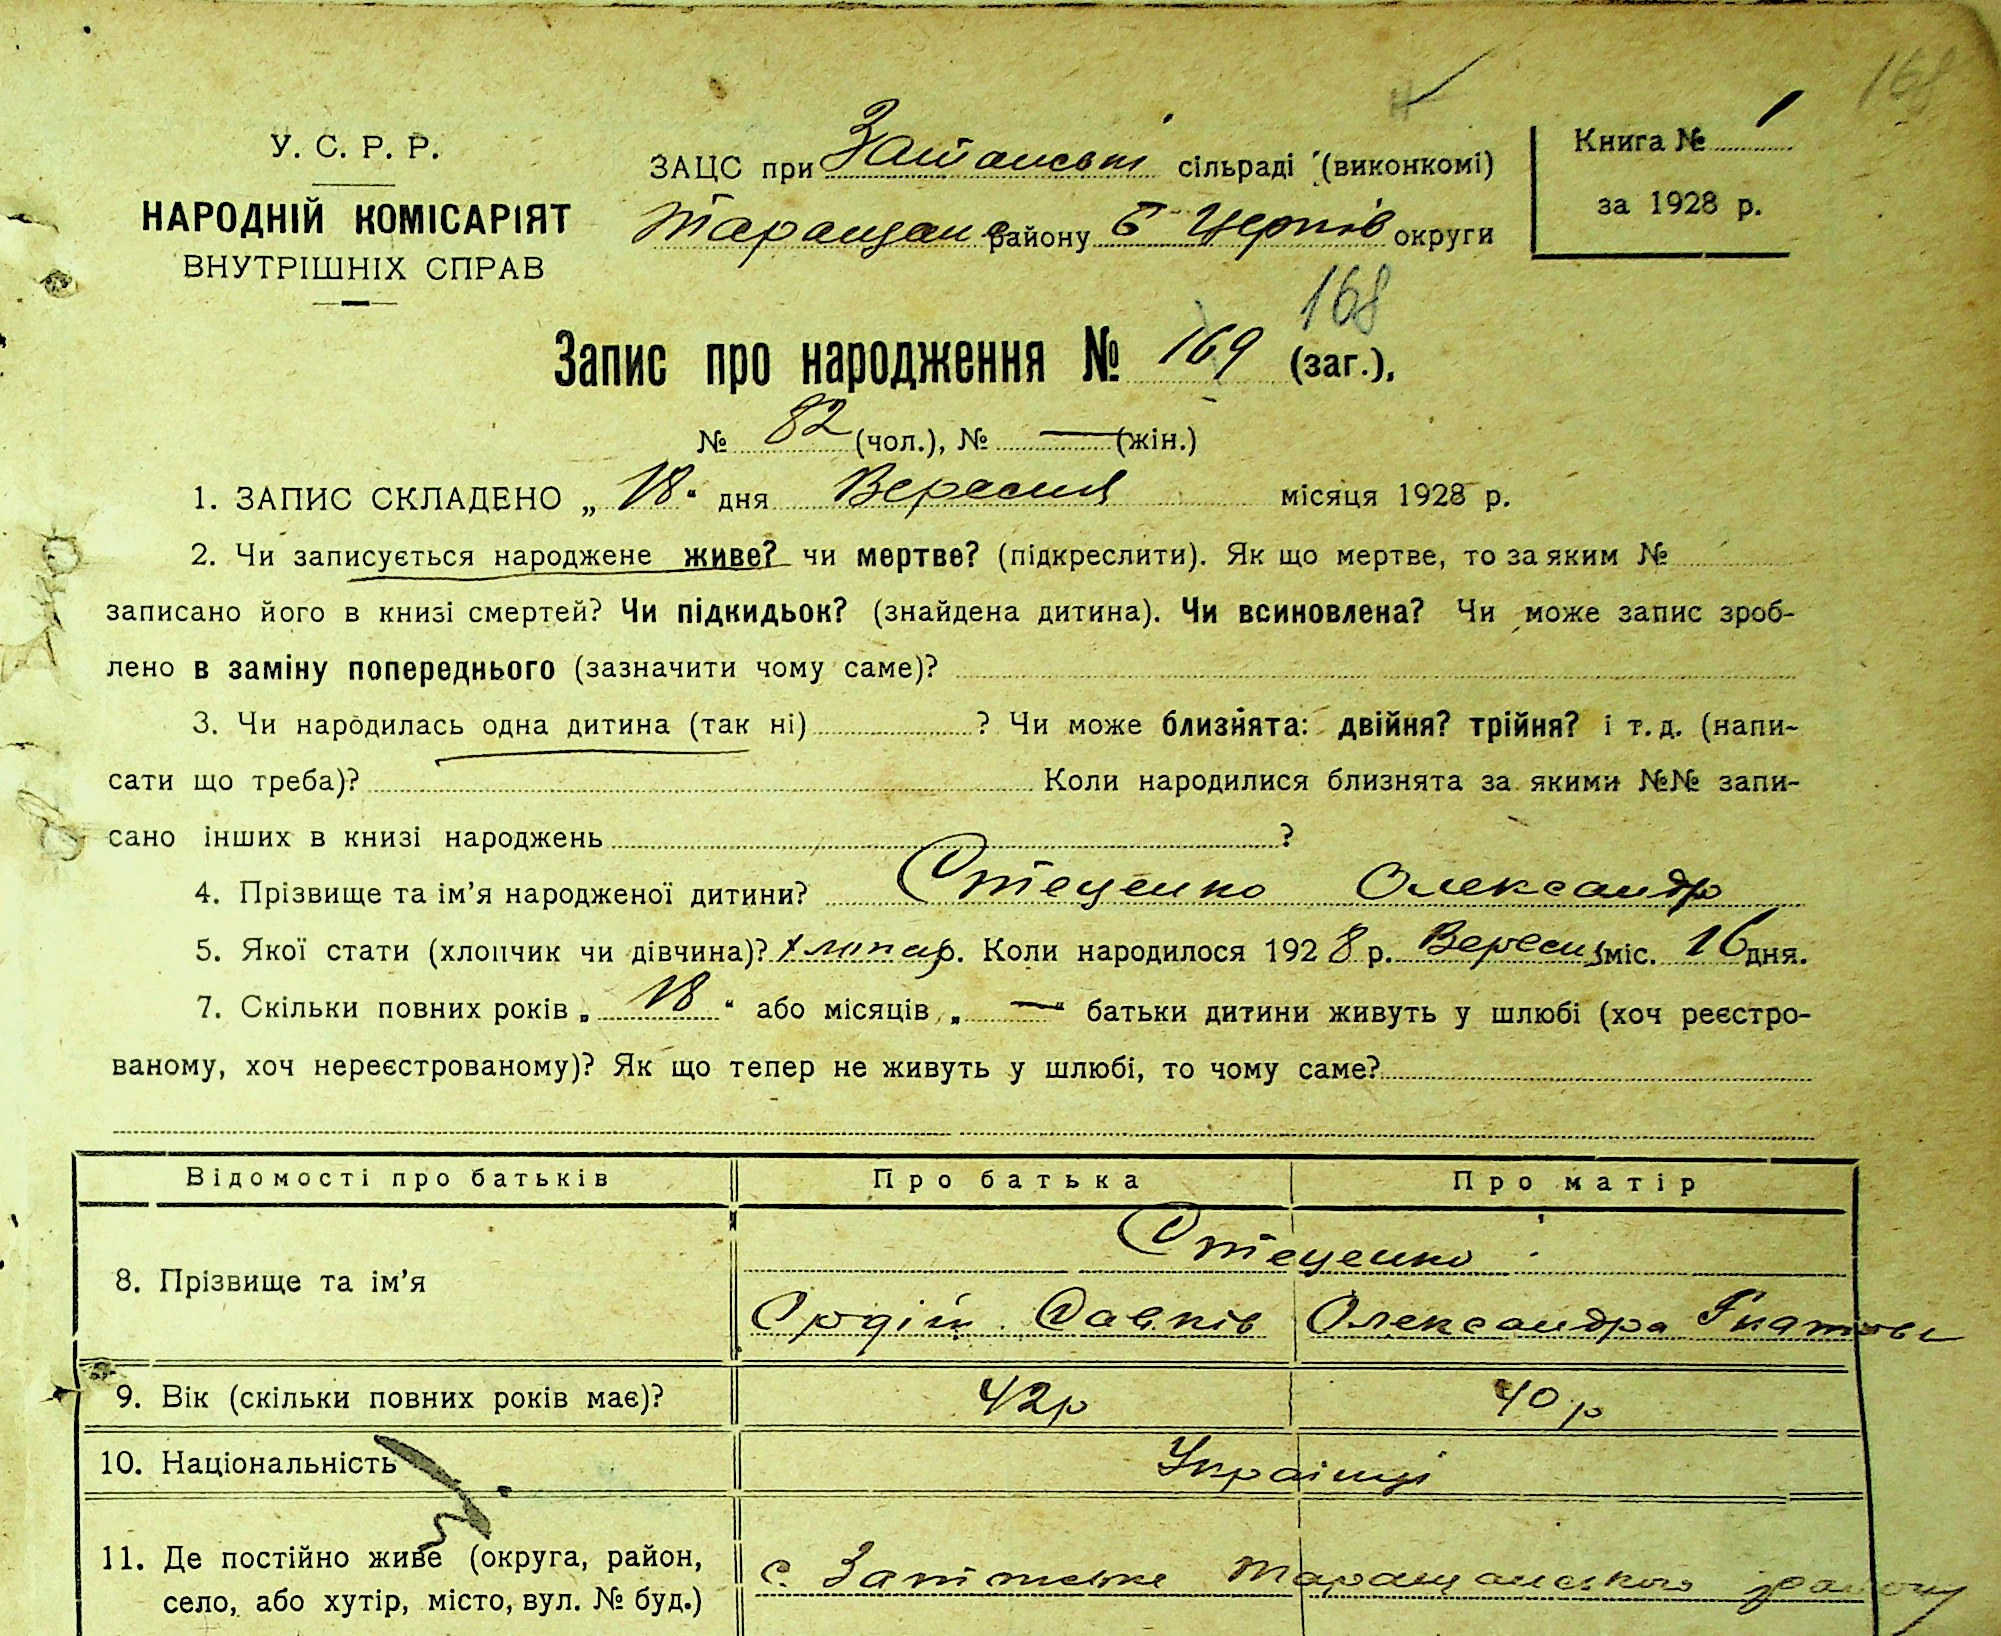 168
У. С. Р. Р.
НАРОДНІЙ КОМІСАРІЯТ
ВНУТРІШНІХ СПРАВ
ЗАЦС при сільраді (виконкомі)
Таращанс району Б Церків округи
Книга № 1
за 1928 р.
168
Запис про народження № 169 (заг.),
№ 82 (чол.), № — (жін.)
1. ЗАПИС СКЛАДЕНО „ 18 “ дня Вересня місяця 1928 р.
2. Чи записується народжене живе? чи мертве? (підкреслити). Як що мертве, то за яким №
записано його в книзі смертей? Чи підкидьок? (знайдена дитина). Чи всиновлена? Чи може запис зроб-
лено в заміну попереднього (зазначити чому саме)?
3. Чи народилась одна дитина (так ні) ? Чи може близнята: двійня? трійня? і т. д. (напи-
сати що треба)? Коли народилися близнята за якими №№ запи-
сано інших в книзі народжень ?
4. Прізвище та ім’я народженої дитини? Стеценко Олександр
5. Якої стати (хлопчик чи дівчина)? . Коли народилося 1928 р. Вересня міс. 16 дня.
7. Скільки повних років „ 18 “ або місяців „ — “ батьки дитини живуть у шлюбі (хоч реєстро-
ваному, хоч нереєстрованому)? Як що тепер не живуть у шлюбі, то чому саме?
Відомості про батьків Про батька Про матір
8. Прізвище та ім’я
Стеценко
Савків Олександра Гнатова
9. Вік (скільки повних років має)? 42 р 40 р
10. Національність Українці
11. Де постійно живе (округа, район,
село, або хутір, місто, вул. № буд.)
с. Таращанського району